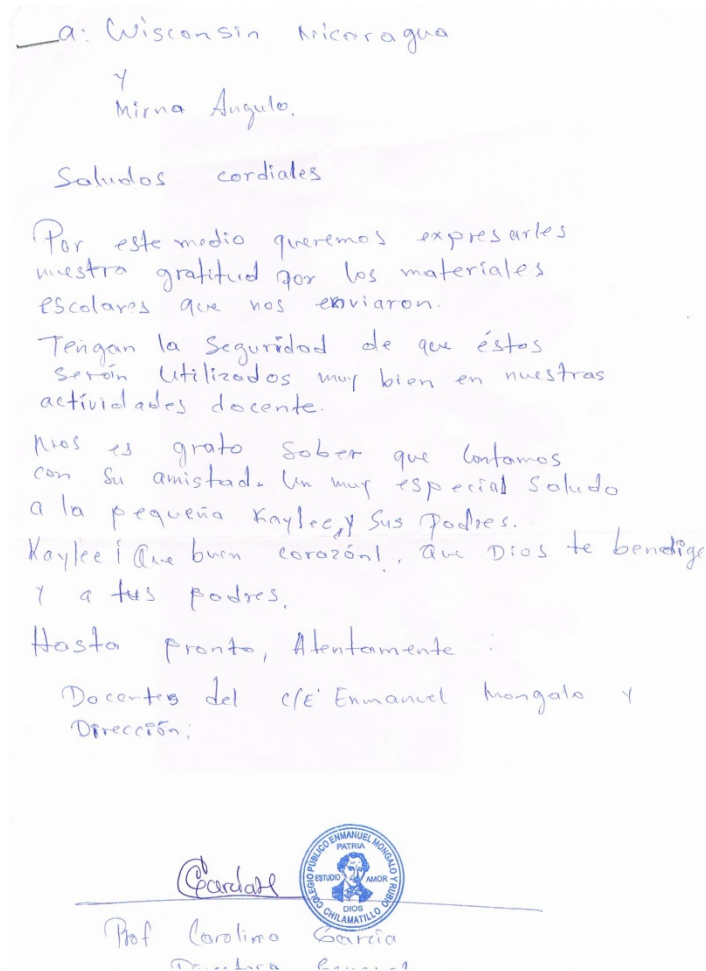 a: Wisconsin Nicaragua
y
Mirna Angulo.
Saludos cordiales
Por este medio queremos expresarles
nuestra gratitud por los materiales
escolares que nos enviaron.
Tengan la Seguridad de que éstos
serán Utilizados muy bien en nuestras
actividades docente.
Nos es grato Saber que Contamos
con Su amistad. Un muy especial Saludo
a la pequeña Kaylee, y Sus Padres.
Kaylee ¡ Que buen corazón!. Que Dios te bendiga
Y a tus padres.
Hasta pronto, Atentamente :
Docentes del C/E Enmanuel Mongalo y
Dirección;
COLEGIO PÚBLICO ENMANUEL MONGALO Y RUBIO
PATRIA
ESTUDIO AMOR
DIOS
CHILAMATILLO
Prof Carolina García
Directora General